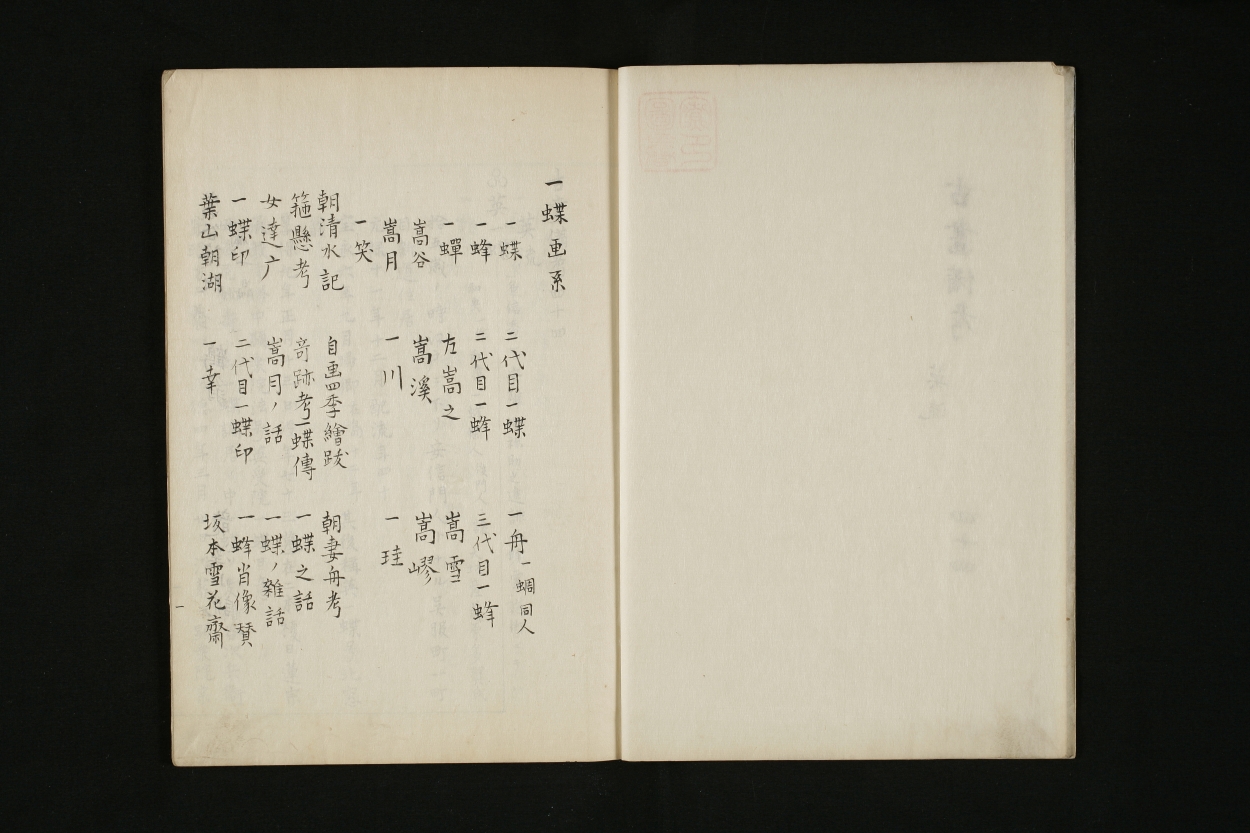 一蝶画系
一蝶 二代目一蝶 一舟 一蜩同人
一蜂 二代目一蜂 三代目一蜂
一蟬 左嵩之 嵩雪
嵩谷 嵩溪 嵩嶛
嵩月 一川 一珪
一笑
朝清水記 自画四季繪跋 朝妻舟考
箍懸考 竒跡考一蝶傳 一蝶之話
女達广 嵩月ノ話 一蝶ノ雜話
一蝶印 二代目一蝶印 一蜂肖像賛
葉山朝湖 一幸 坂本雪花齋